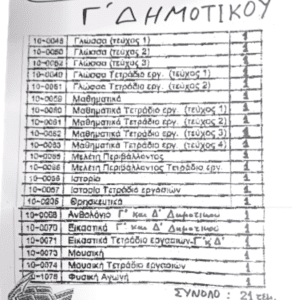 Γ΄ ΔΗΜΟΤΙΚΟΥ
10-0048 Γλώσσα (τεύχος 1) 1
10-0050 Γλώσσα (τεύχος 2) 1
Γλώσσα (τεύχος 3) 1
Γλώσσα Τετράδιο εργ. (τεύχος 1) 1
10-0051 Γλώσσα Τετράδιο εργ. (τεύχος 2) 1
10-0059 Μαθηματικά 1
10-0060 Μαθηματικά Τετράδιο εργ. (τεύχος 1) 1
10-0061 Μαθηματικά Τετράδιο εργ. (τεύχος 2) 1
10-0062 Μαθηματικά Τετράδιο εργ. (τεύχος 3) 1
10-0063 Μαθηματικά Τετράδιο εργ. (τεύχος 4) 1
10-0065 Μελέτη Περιβάλλοντος 1
10-0066 Μελέτη Περιβάλλοντος Τετράδιο εργ. 1
10-0056 Ιστορία 1
10-0057 Ιστορία Τετράδιο εργασιών 1
Θρησκευτικά 1
10-0068 Ανθολόγιο Γ΄ και Δ΄ Δημοτικου 1
10-0070 Εικαστικά Γ΄ και Δ΄ Δημοτικου 1
10-0071 Εικαστικά Τετράδιο εργασιών Γ΄ κ΄ Δ΄ 1
10-0073 Μουσική 1
10-0074 Μουσική Τετράδιο εργασιών 1
Φυσική Αγωγή 1
ΣΥΝΟΛΟ : 21 τεμ.